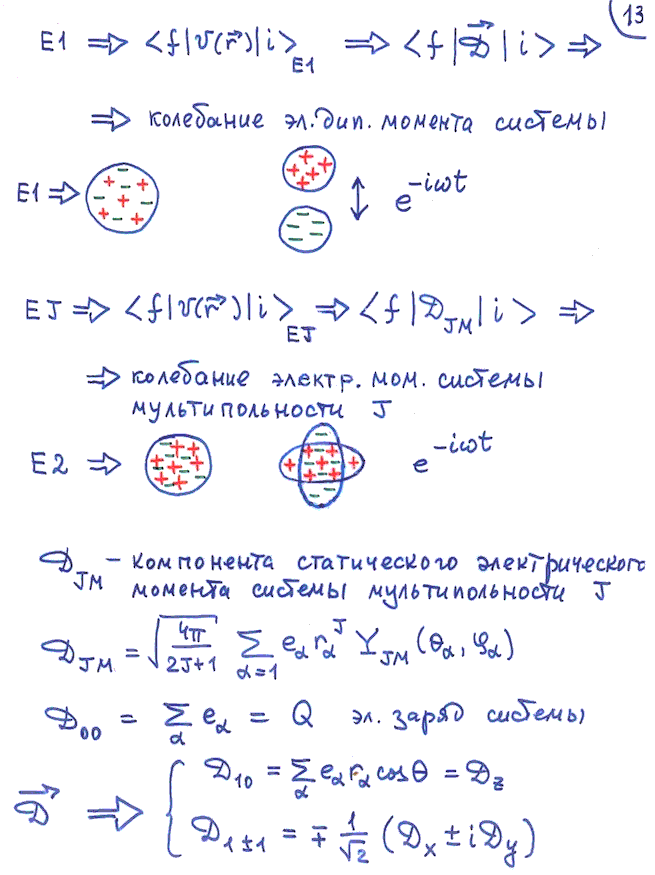 13
E1 ⇒ <f|v(r⃗)|i>_E1 ⇒ <f|𝒟⃗|i> ⇒
⇒ колебание эл.дип. момента системы
E1 ⇒ e^{-iωt}
EJ ⇒ <f|v(r⃗)|i>_EJ ⇒ <f|𝒟_JM|i> ⇒
⇒ колебание электр. мом. системы
мультипольности J
E2 ⇒ e^{-iωt}
𝒟_JM – компонента статического электрического
момента системы мультипольности J
𝒟_JM = √(4π/(2J+1)) Σ_{α=1} e_α r_α^J Y_JM (θ_α, φ_α)
𝒟_00 = Σ_α e_α = Q эл. заряд системы
𝒟_10 = Σ_α e_α r_α cosθ = 𝒟_z
𝒟⃗ ⇒ {
𝒟_{1±1} = ∓ 1/√2 (𝒟_x ± i𝒟_y)